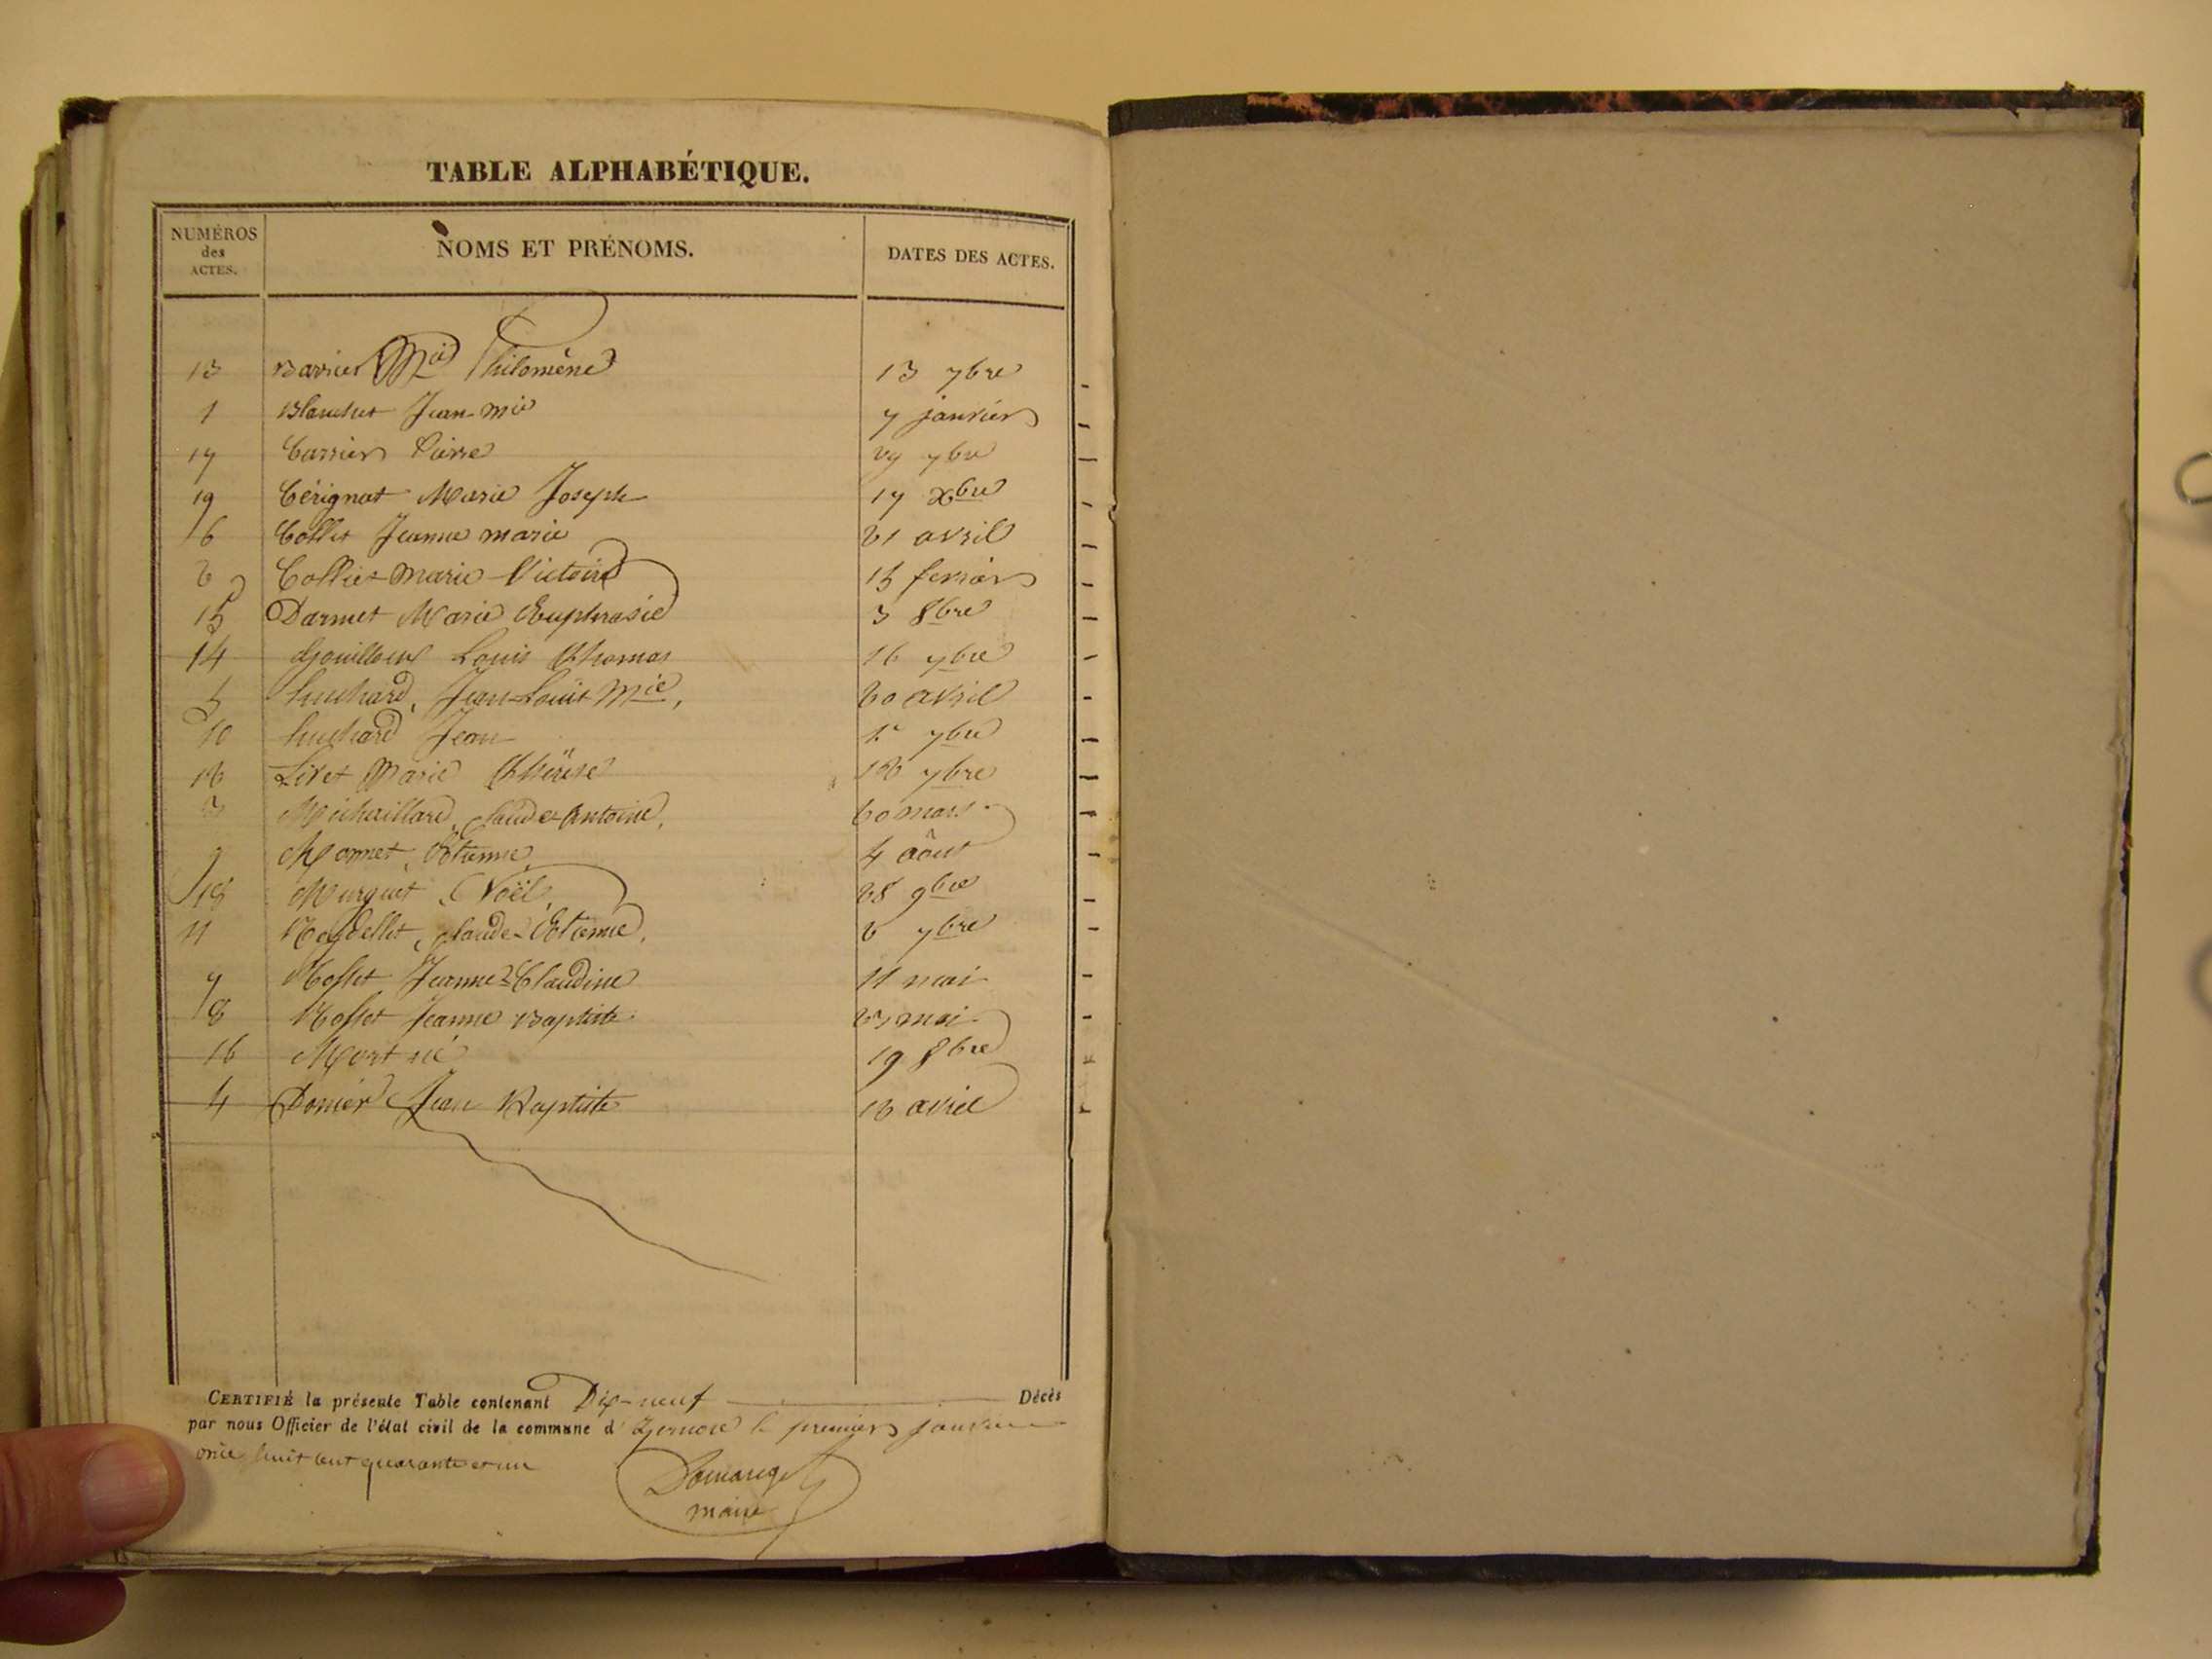 TABLE ALPHABÉTIQUE.
NUMÉROS des ACTES. NOMS ET PRÉNOMS. DATES DES ACTES.
13 Barrier Mie Philomène 13 7bre
1 Blanchet Jean-mie 7 janvier
17 Carrier Pierre 29 7bre
19 Cérignat Marie Joseph 17 xbre
6 Collet Jeanne marie 21 avril
2 Collet Marie Victoire 15 fevrier
15 Darmet Marie Euphrasie 3 8bre
14 Gouilloux Louis Thomas 16 7bre
5 Huchard, Jean-Louis Mie, 20 avril
10 huchard Jean 1r 7bre
12 Livet Marie Thérèse 12 7bre
3 Michaillard, Claude-Antoine, 20 mars
9 Monnet, Etienne 4 août
18 Murguet, Noël, 28 9bre
11 Reydellet, Claude-Etienne, 2 7bre
7 Rosset Jeanne-Claudine 11 mai
8 Rosset Jeanne Baptiste 23 mai
16 Mort né 19 8bre
4 Donier Jean Baptiste 12 avril
CERTIFIÉ la présente Table contenant Dix-neuf Décès
par nous Officier de l'état civil de la commune d'Izernore le premier janvier
huit cent quarante et un
maire